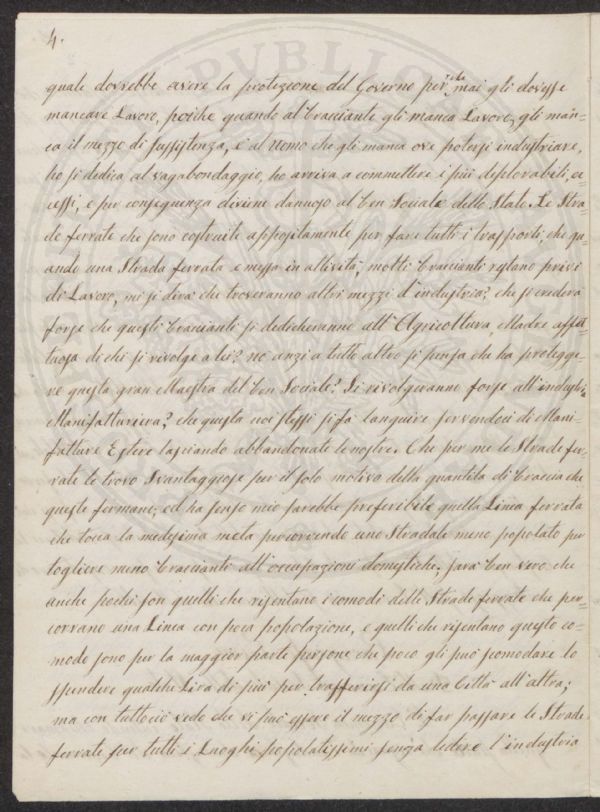 4.
quale dovrebbe avere la protezione del Governo per che mai gli dovesse
mancare Lavoro, poiche quando al bracciante gli manca Lavoro, gli man=
ca il mezzo di Sussistenza, e al Uomo che gli manca ove potersi industriare,
ho si dedica al vagabondaggio, ho arriva a commettere i più deplorabili, ec
cessi, e per conseguenza diviene dannoso al ben Sociale dello Stato. Le Stra=
de ferrate che sono costruite appositamente per fare tutti i trasporti, che qu=
ando una Strada ferrata e messa in attività, molti braccianti restano privi
di Lavoro, mi si dirà che troveranno altri mezzi d'industria? che si crederà
forse che questi braccianti si dedicheranno all'Agricoltura Madre affet=
tuosa di chi si rivolge a lei? no anzi a tutto altro si pensa che ha protegge=
re questa gran Maestra del ben Sociale? Si rivolgeranno forse all'industria
Manifatturiera? che questa noi stessi si fà languire servendoci di Mani=
fatture Estere lasciando abbandonate le nostre. Che per me le Strade fer=
rate le trovo Svantaggiose per il solo motivo della quantità di braccia che
queste fermano; ed ha senso mio sarebbe preferibile quella Linea ferrata
che tocca la medesima meta percorrendo uno Stradale meno popolato per
togliere meno braccianti all'occupazioni domestiche. Sarà ben vero che
anche pochi son quelli che risentano i comodi delle Strade ferrate che per=
corrano una Linea con poca popolazione, e quelli che risentano questo co=
modo sono per la maggior parte persone che poco gli può scomodare lo
spendere qualche Lira di più per trasferirsi da una Città all'altra;
ma con tuttociò vedo che vi può essere il mezzo di far passare le Strade
ferrate per tutti i Luoghi popolatissimi senza ledere l'industria